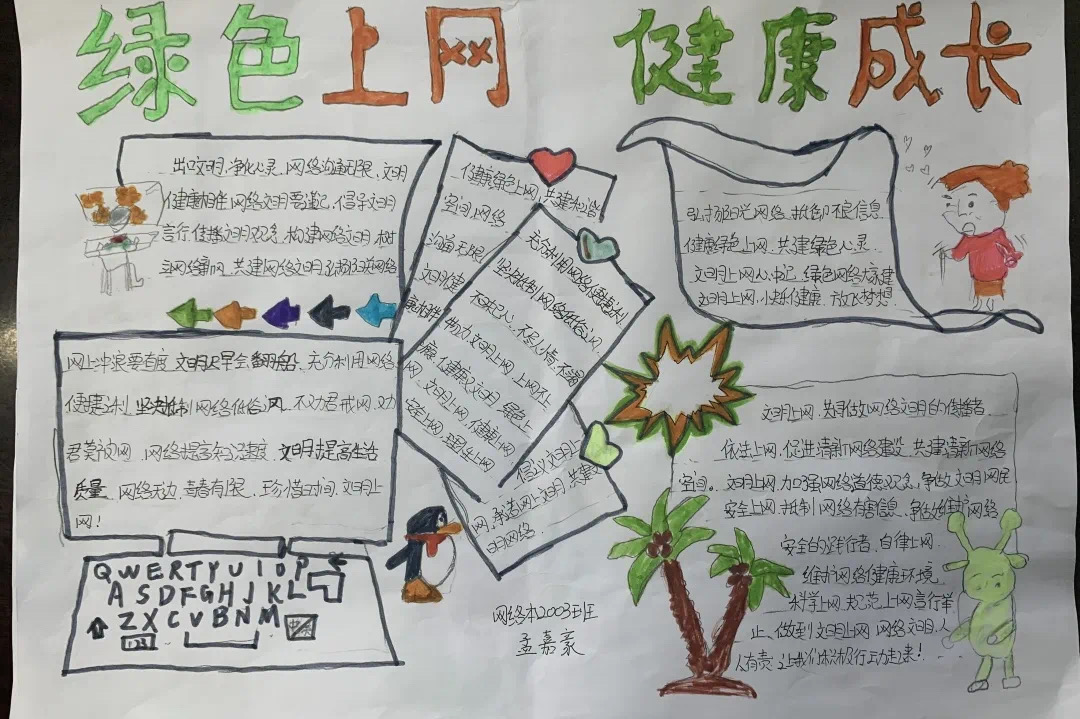 绿色上网 健康成长
出口文明,净化心灵,网络沟通无限、文明
健康相伴,网络文明要谨记,倡导文明
言行,传播文明观念,构建网络文明,树
立网络新风,共建网络文明,弘扬阳光网络
健康绿色上网,共建和谐
空间,网络
沟通无限
文明健
康相伴
充分利用网络便捷之利
坚决抵制网络低俗之风
网上冲浪要有度 文明迟早会翻船、充分利用网络
便捷之利,坚决抵制网络低俗之风、不劝君戒网,劝
君莫被网,网络提高知识速度,文明提高生活
质量、网络无边,青春有限、珍惜时间,文明上
网!
QWERTYUIOP
ASDFGHJKL
ZXCVBNM
倡议文明上
网,营造网上文明,共建文
明网络.
弘扬阳光网络,抵御不良信息
健康绿色上网,共建绿色心灵
文明上网人人书记,绿色网络大家建
文明上网,快乐健康,放飞梦想.
文明上网,为争做网络文明的传播者
依法上网,促进清新网络建设,共建清新网络
空间。文明上网,加强网络道德观念,争做文明网民
安全上网,抵制网络有害信息,争做维护网络
安全的践行者,自律上网
维护网络健康环境
科学上网,规范上网言行举
止、做到文明上网,网络文明,人
人有责,让我们积极行动起来!
网络本2003班
孟嘉豪